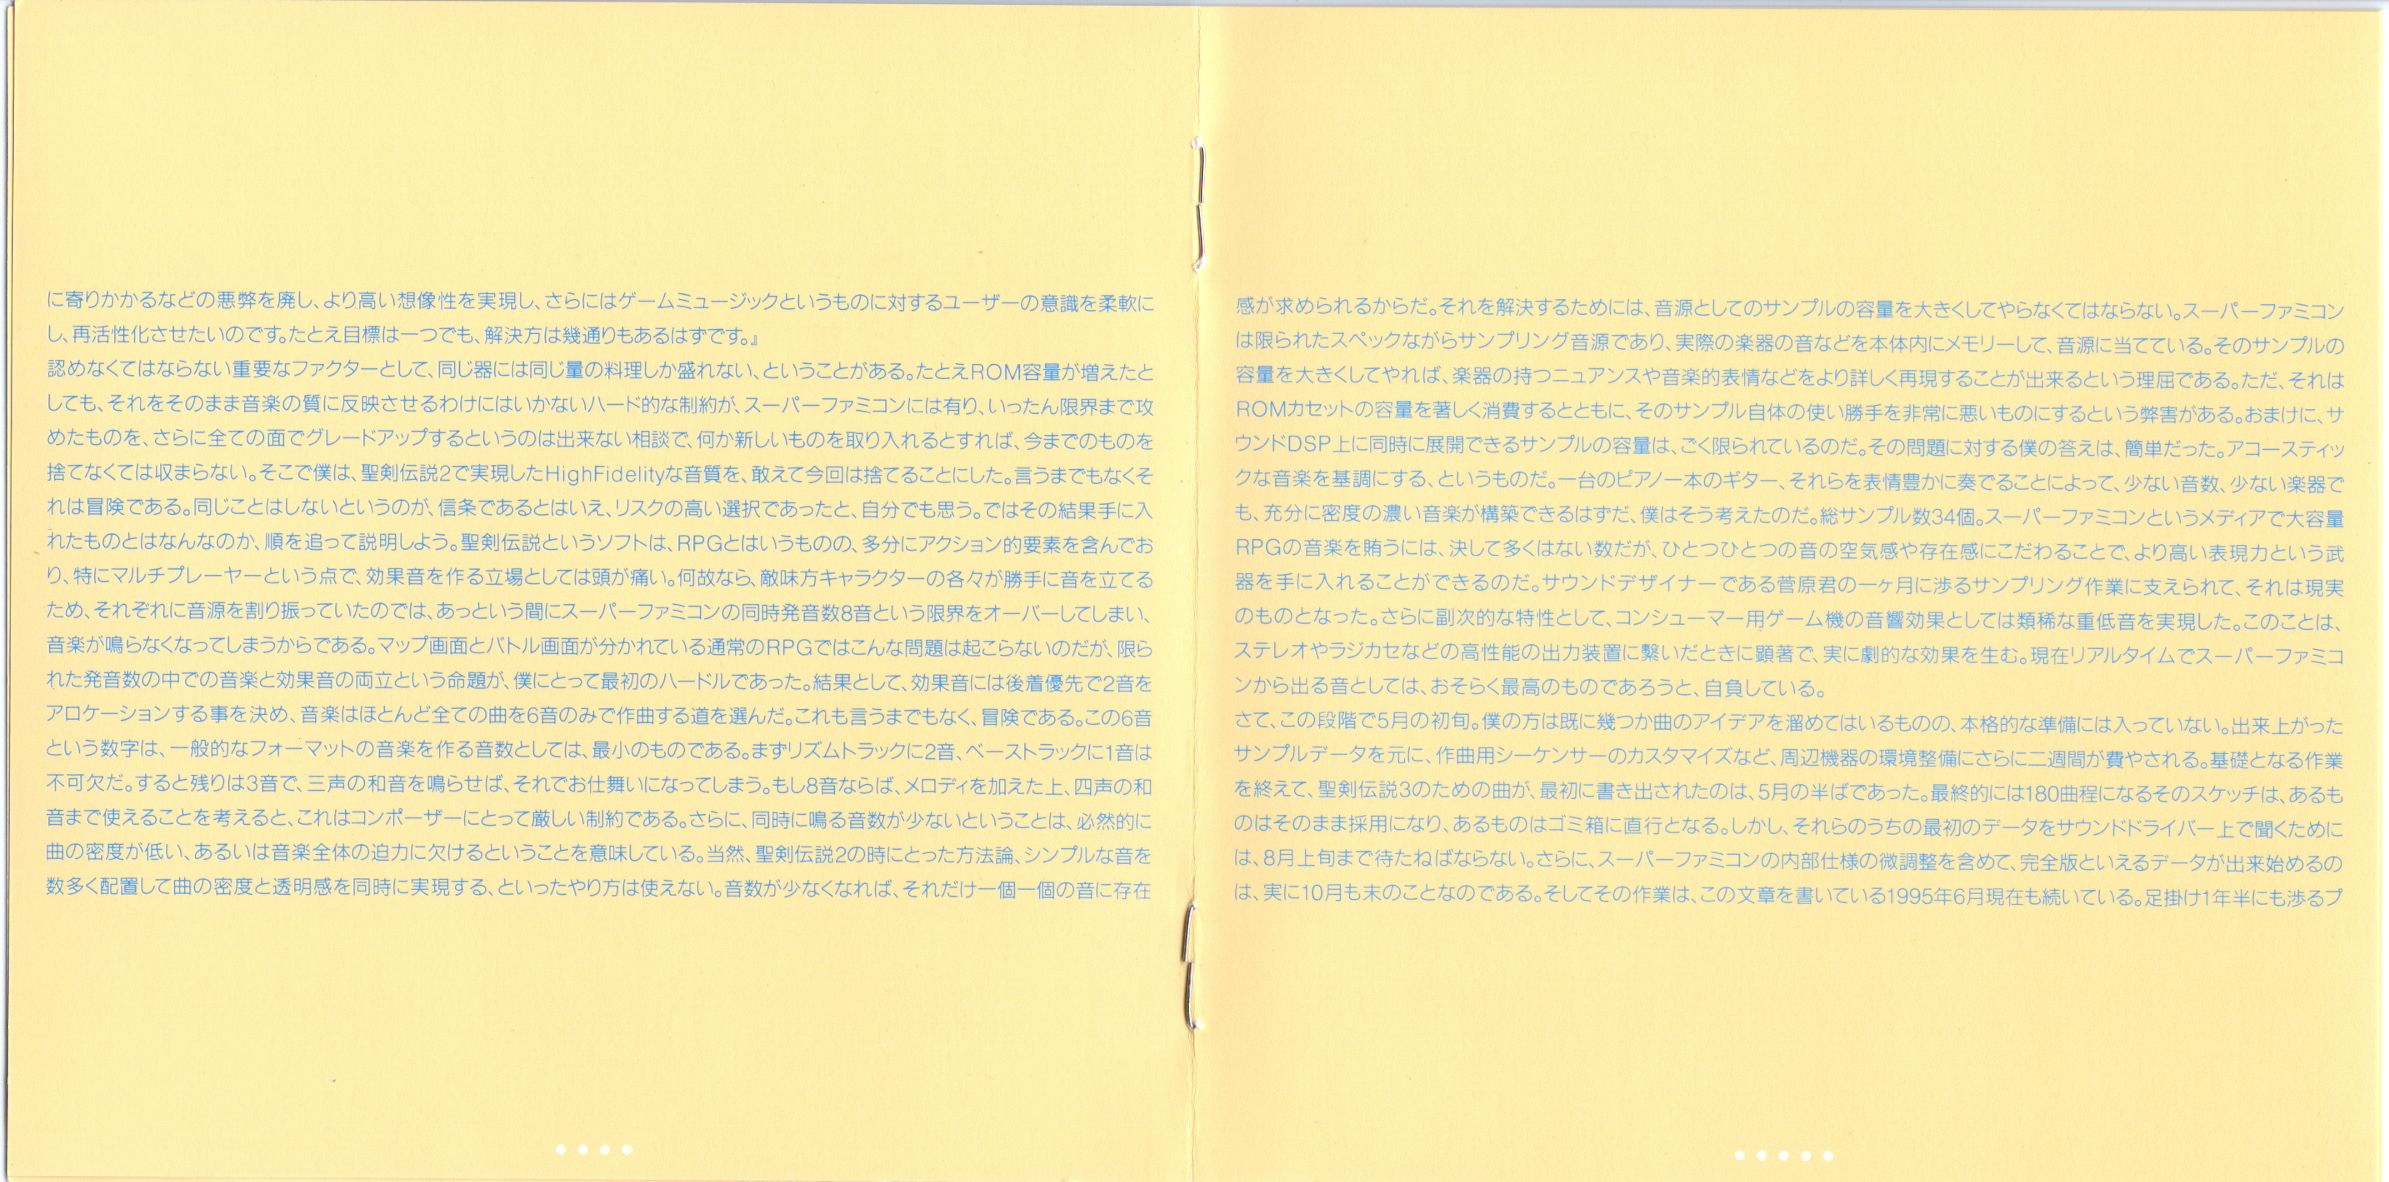 に寄りかかるなどの悪弊を廃し、より高い想像性を実現し、さらにはゲームミュージックというものに対するユーザーの意識を柔軟に
し、再活性化させたいのです。たとえ目標は一つでも、解決方は幾通りもあるはずです。』
認めなくてはならない重要なファクターとして、同じ器には同じ量の料理しか盛れない、ということがある。たとえROM容量が増えたと
しても、それをそのまま音楽の質に反映させるわけにはいかないハード的な制約が、スーパーファミコンには有り、いったん限界まで攻
めたものを、さらに全ての面でグレードアップするというのは出来ない相談で、何か新しいものを取り入れるとすれば、今までのものを
捨てなくては収まらない。そこで僕は、聖剣伝説2で実現したHighFidelityな音質を、敢えて今回は捨てることにした。言うまでもなくそ
れは冒険である。同じことはしないというのが、信条であるとはいえ、リスクの高い選択であったと、自分でも思う。ではその結果手に入
れたものとはなんなのか、順を追って説明しよう。聖剣伝説というソフトは、RPGとはいうものの、多分にアクション的要素を含んでお
り、特にマルチプレーヤーという点で、効果音を作る立場としては頭が痛い。何故なら、敵味方キャラクターの各々が勝手に音を立てる
ため、それぞれに音源を割り振っていたのでは、あっという間にスーパーファミコンの同時発音数8音という限界をオーバーしてしまい、
音楽が鳴らなくなってしまうからである。マップ画面とバトル画面が分かれている通常のRPGではこんな問題は起こらないのだが、限ら
れた発音数の中での音楽と効果音の両立という命題が、僕にとって最初のハードルであった。結果として、効果音には後着優先で2音を
アロケーションする事を決め、音楽はほとんど全ての曲を6音のみで作曲する道を選んだ。これも言うまでもなく、冒険である。この6音
という数字は、一般的なフォーマットの音楽を作る音数としては、最小のものである。まずリズムトラックに2音、ベーストラックに1音は
不可欠だ。すると残りは3音で、三声の和音を鳴らせば、それでお仕舞いになってしまう。もし8音ならば、メロディを加えた上、四声の和
音まで使えることを考えると、これはコンポーザーにとって厳しい制約である。さらに、同時に鳴る音数が少ないということは、必然的に
曲の密度が低い、あるいは音楽全体の迫力に欠けるということを意味している。当然、聖剣伝説2の時にとった方法論、シンプルな音を
数多く配置して曲の密度と透明感を同時に実現する、といったやり方は使えない。音数が少なくなれば、それだけ一個一個の音に存在
感が求められるからだ。それを解決するためには、音源としてのサンプルの容量を大きくしてやらなくてはならない。スーパーファミコン
は限られたスペックながらサンプリング音源であり、実際の楽器の音などを本体内にメモリーして、音源に当てている。そのサンプルの
容量を大きくしてやれば、楽器の持つニュアンスや音楽的表情などをより詳しく再現することが出来るという理屈である。ただ、それは
ROMカセットの容量を著しく消費するとともに、そのサンプル自体の使い勝手を非常に悪いものにするという弊害がある。おまけに、サ
ウンドDSP上に同時に展開できるサンプルの容量は、ごく限られているのだ。その問題に対する僕の答えは、簡単だった。アコースティッ
クな音楽を基調にする、というものだ。一台のピアノ一本のギター、それらを表情豊かに奏でることによって、少ない音数、少ない楽器で
も、充分に密度の濃い音楽が構築できるはずだ、僕はそう考えたのだ。総サンプル数34個。スーパーファミコンというメディアで大容量
RPGの音楽を賄うには、決して多くはない数だが、ひとつひとつの音の空気感や存在感にこだわることで、より高い表現力という武
器を手に入れることができるのだ。サウンドデザイナーである菅原君の一ヶ月に渉るサンプリング作業に支えられて、それは現実
のものとなった。さらに副次的な特性として、コンシューマー用ゲーム機の音響効果としては類稀な重低音を実現した。このことは、
ステレオやラジカセなどの高性能の出力装置に繋いだときに顕著で、実に劇的な効果を生む。現在リアルタイムでスーパーファミコ
ンから出る音としては、おそらく最高のものであろうと、自負している。
さて、この段階で5月の初旬。僕の方は既に幾つか曲のアイデアを溜めてはいるものの、本格的な準備には入っていない。出来上がった
サンプルデータを元に、作曲用シーケンサーのカスタマイズなど、周辺機器の環境整備にさらに二週間が費やされる。基礎となる作業
を終えて、聖剣伝説3のための曲が、最初に書き出されたのは、5月の半ばであった。最終的には180曲程になるそのスケッチは、あるも
のはそのまま採用になり、あるものはゴミ箱に直行となる。しかし、それらのうちの最初のデータをサウンドドライバー上で聞くために
は、8月上旬まで待たねばならない。さらに、スーパーファミコンの内部仕様の微調整を含めて、完全版といえるデータが出来始めるの
は、実に10月も末のことなのである。そしてその作業は、この文章を書いている1995年6月現在も続いている。足掛け1年半にも渉るプ